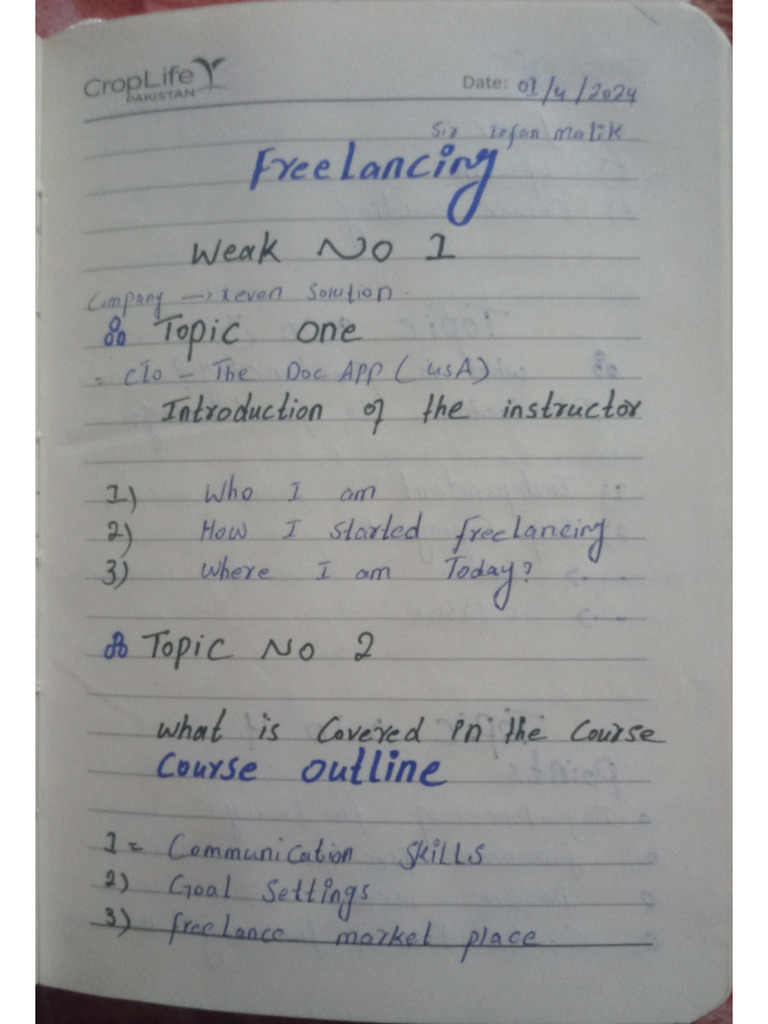 CropLife
PAKISTAN
Date: 01/4/2024
Sir Irfan Malik
Freelancing
Weak No 1
Company → Xeven Solution.
Topic one
= CTO - The Doc App (USA)
Introduction of the instructor
1) Who I am
2) How I started freelancing
3) Where I am Today?
Topic No 2
What is Covered in the Course
Course outline
1 = Communication Skills
2) Goal Settings
3) freelance market place.